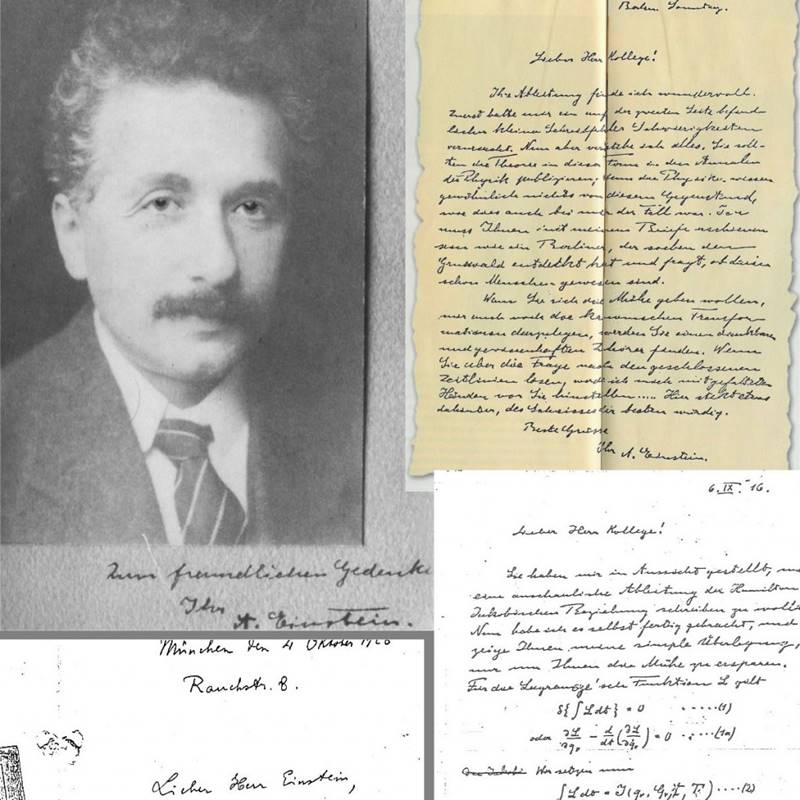 Zum freundlichen Gedenke
Ihr A. Einstein.
München den 4 Oktober 1926
Rauchstr. 8.
Lieber Herr Einstein,
Berlin. Sonntag.
Lieber Herr Kollege!
Ihre Ableitung finde ich wundervoll.
Zuerst hatte mir ein auf der zweiten Seite befind-
licher kleiner Schreibfehler Schwierigkeiten
verursacht. Nun aber verstehe ich alles. Sie soll-
ten die Theorie in dieser Form in den Annalen
der Physik publizieren, denn die Physiker wissen
gewöhnlich nichts von diesem Gegenstand,
wie dies auch bei mir der Fall war. Ich
muss Ihnen mit meinem Briefe erschienen
sein wie ein Berliner, der soeben den
Grunewald entdeckt hat und fragt, ob darin
schon Menschen gewesen sind.
Wenn Sie sich die Mühe geben wollen,
mir auch noch die kanonischen Transfor-
mationen darzulegen, werden Sie einen dankbaren
und gewissenhaften Zuhörer finden. Wenn
Sie aber die Frage nach den geschlossenen
Zeitlinien lösen, werde ich mich mit gefalteten
Händen vor Sie hinstellen..... Hier steckt etwas
dahinter, des Schweisses der Besten würdig.
Beste Grüsse
Ihr A. Einstein.
6. IX. 16.
Lieber Herr Kollege!
Sie haben mir in Aussicht gestellt, mir
eine anschauliche Ableitung der Hamilton
Jakobischen Beziehung schreiben zu wolle
Nun habe ich es selbst fertig gebracht, und
zeige Ihnen meine simple Überlegung,
nur um Ihnen die Mühe zu ersparen.
Für die Lagrange'sche Funktion L gilt
δ{∫L dt} = 0 .....(1)
oder ∂L/∂qᵥ - d/dt(∂L/∂q̇ᵥ) = 0 .....(1a)
Wir setzen nun
∫L dt = J(
) ....(2)